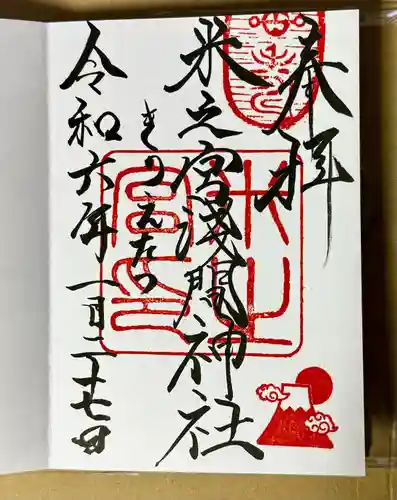 奉拝
米之宮浅間神社
きのえたつ
令和六年一月二十七日